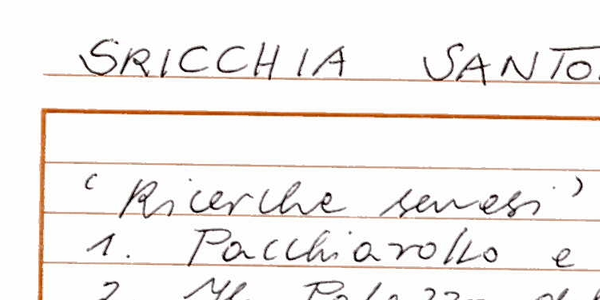 SRICCHIA SANTO
‘Ricerche senesi’
1. Pacchiarotto e
2. Il Palazzo del